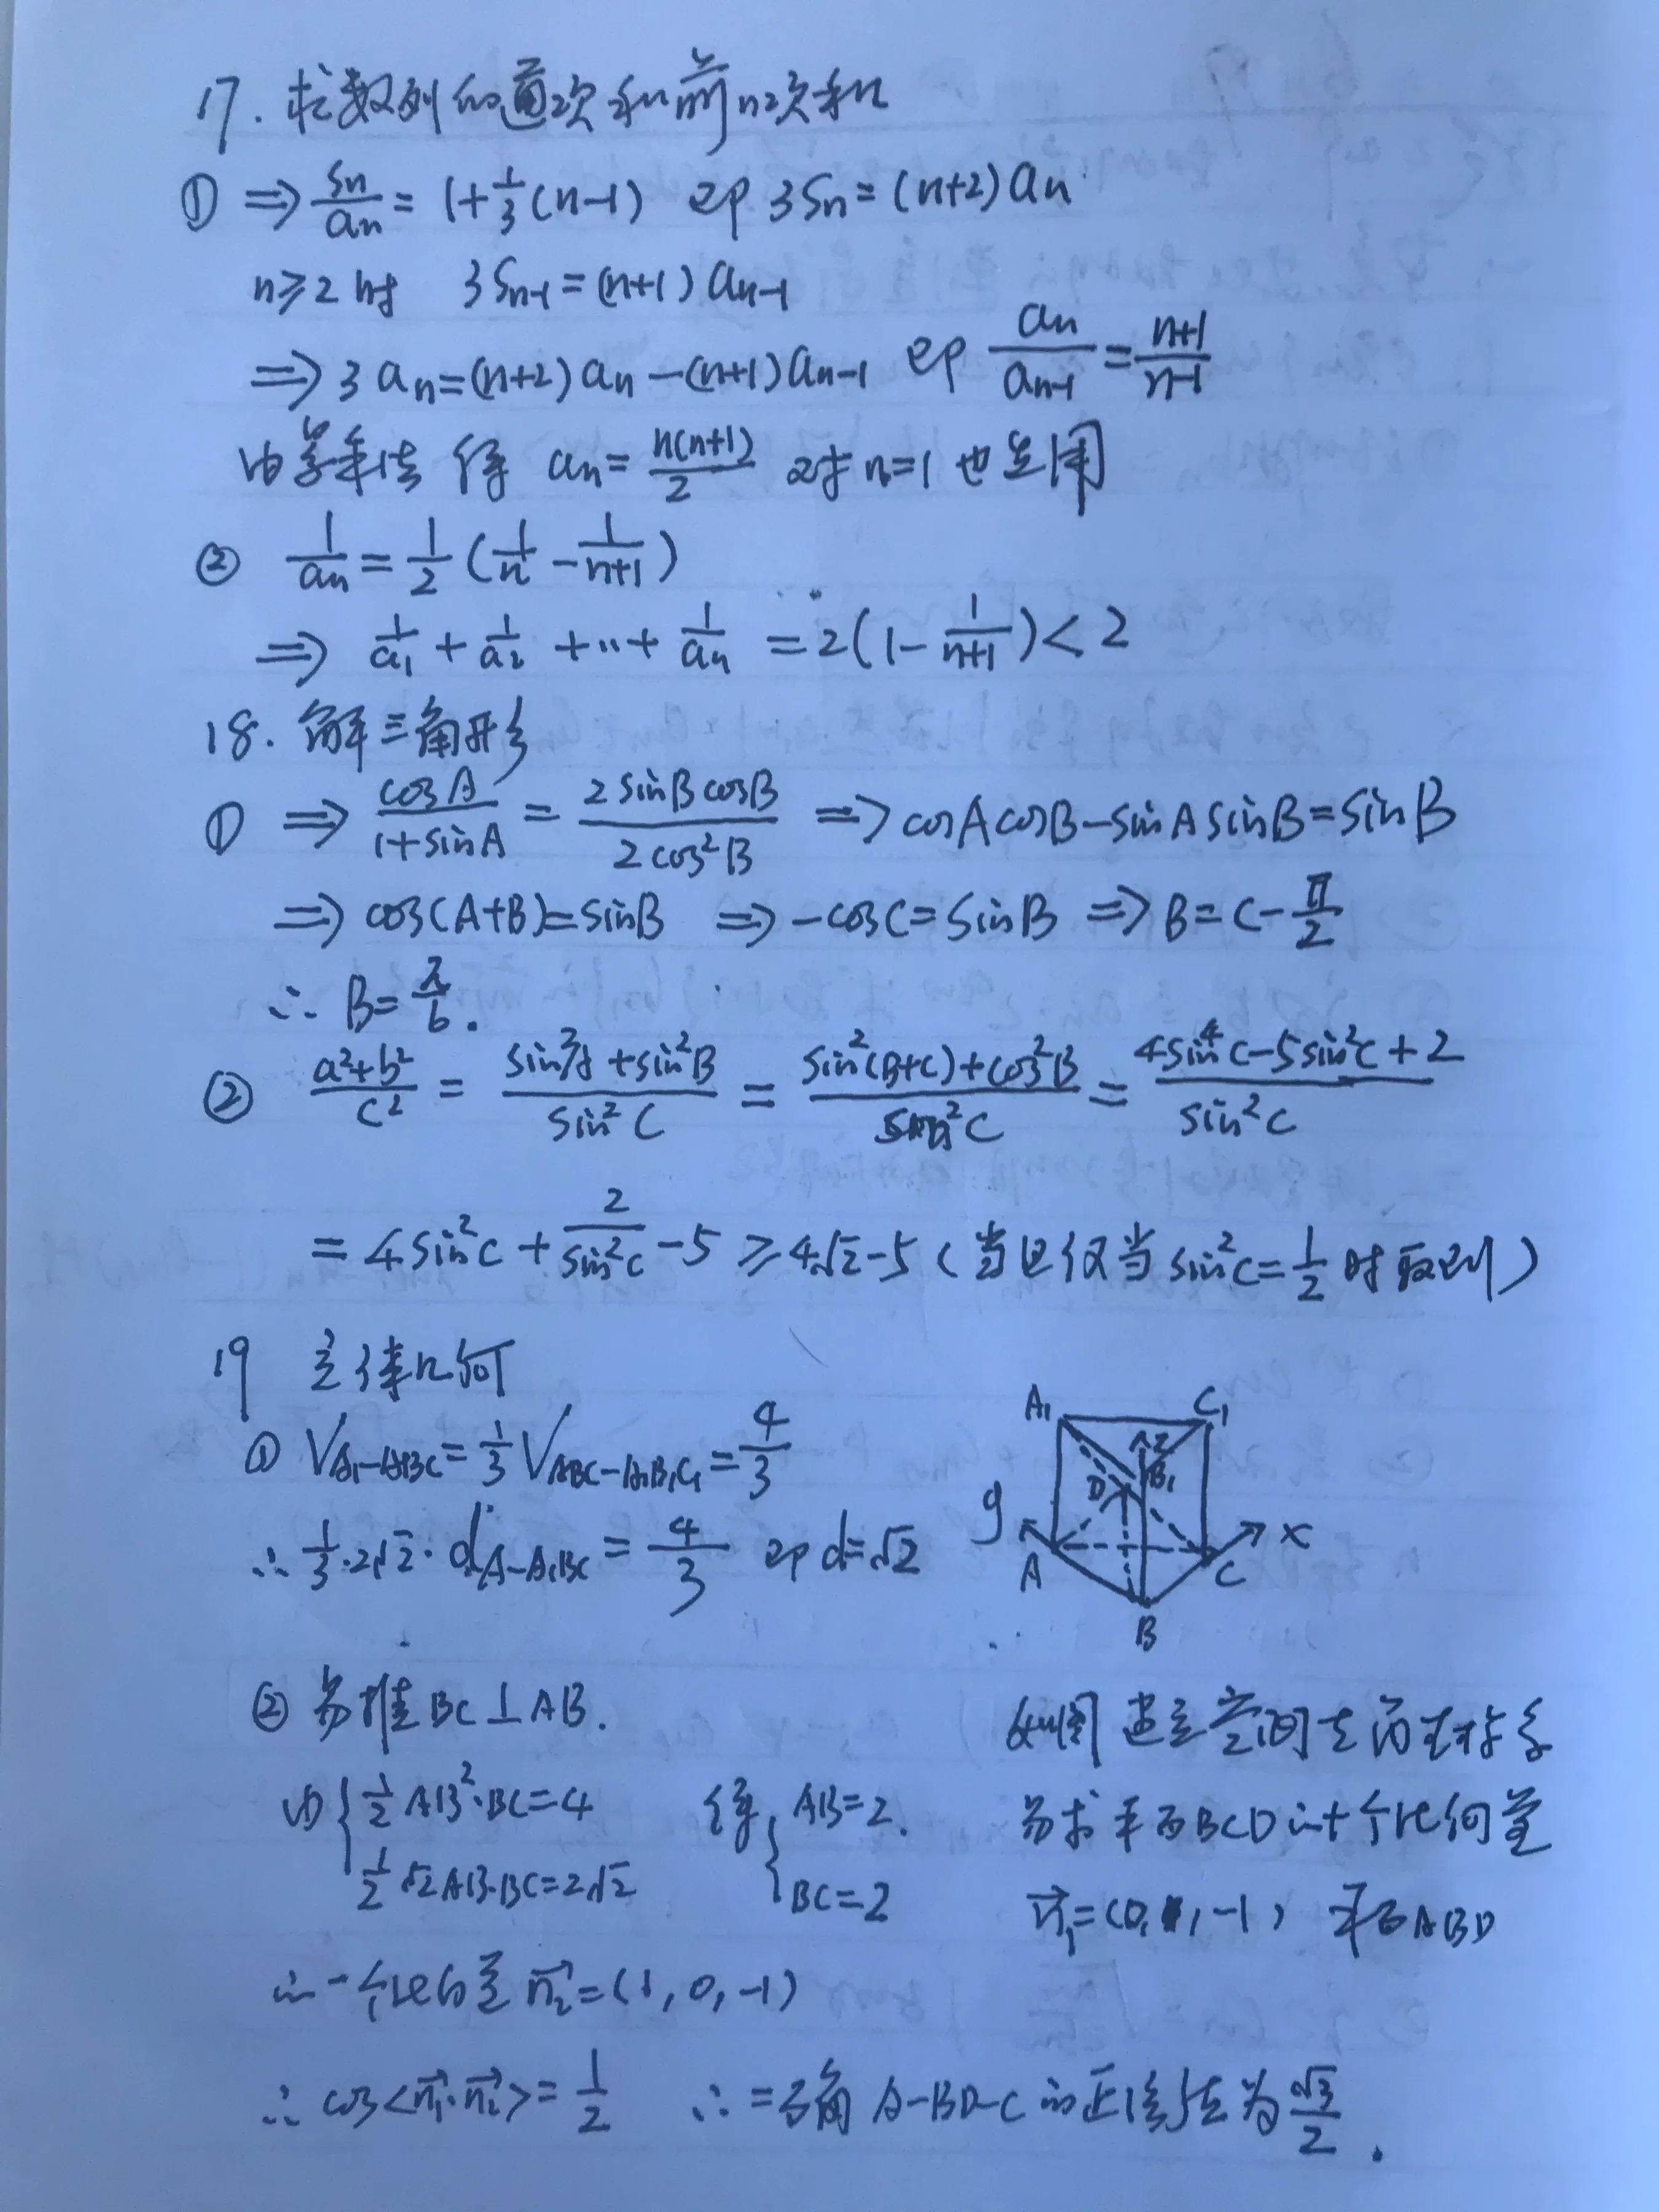 17. 求数列的通项和前n项和
① ⇒ Sn/an = 1+1/3(n-1) 即 3Sn=(n+2)an
n≥2时 3Sn-1=(n+1)an-1
⇒ 3an=(n+2)an-(n+1)an-1 即 an/an-1 = n+1/n-1
由累乘法 得 an= n(n+1)/2 对n=1也适用
② 1/an = 1/2 (1/n - 1/n+1)
⇒ 1/a1 + 1/a2 + … + 1/an = 2(1- 1/n+1)<2
18. 解三角形
① ⇒ cosA/1+sinA = 2sinBcosB/2cos²B ⇒ cosAcosB-sinAsinB=sinB
⇒ cos(A+B)=sinB ⇒ -cosC=sinB ⇒ B=C-π/2
∴ B=π/6.
② a²+b²/c² = sin²A+sin²B/sin²C = sin²(B+C)+cos²B/sin²C = 4sin⁴C-5sin²C+2/sin²C
= 4sin²C + 2/sin²C - 5 ≥ 4√2-5 (当且仅当 sin²C=1/2 时取到)
19 立体几何
① VA1-ABC = 1/3 VABC-A1B1C1 = 4/3
∴ 1/3·2√2·dA-A1BC = 4/3 即 d=√2
A1 C1
z
D B1
y
x
A C
B
② 易推 BC⊥AB.
由 { 1/2 AB²·BC=4 得 { AB=2.
1/2 √2AB·BC=2√2 BC=2
如图 建立空间直角坐标系
易求平面BCD的一个法向量
n1=(0,1,-1) 平面ABD
的一个法向量 n2=(1,0,-1)
∴ cos<n1·n2>=1/2 ∴ 二面角 A-BD-C 的正弦值为 √3/2.